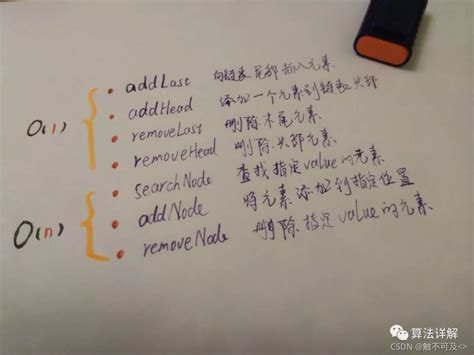 addLast 向链表尾部插入元素
addHead 添加一个元素到链表头部
removeLast 删除末尾元素
removeHead 删除头部元素
searchNode 查找指定value的元素
addNode 将元素添加到指定位置
removeNode 删除指定value的元素
O(1)
O(n)
算法详解
CSDN @触不可及<>